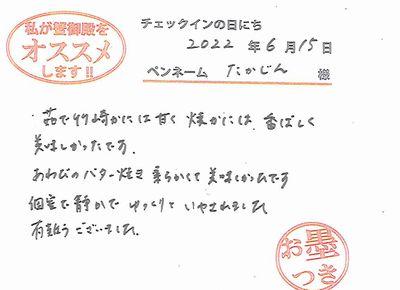 私が蟹御殿を
オススメ
します!!
チェックインの日にち
2022 年 6 月 15 日
ペンネーム たかじん 様
茹で竹崎かには甘く 焼かには 香ばしく
美味しかったです
あわびのバター焼き 柔らかくて 美味しかったです
個室で静かで ゆっくりと いやされました
有難う ございました
お墨
つき